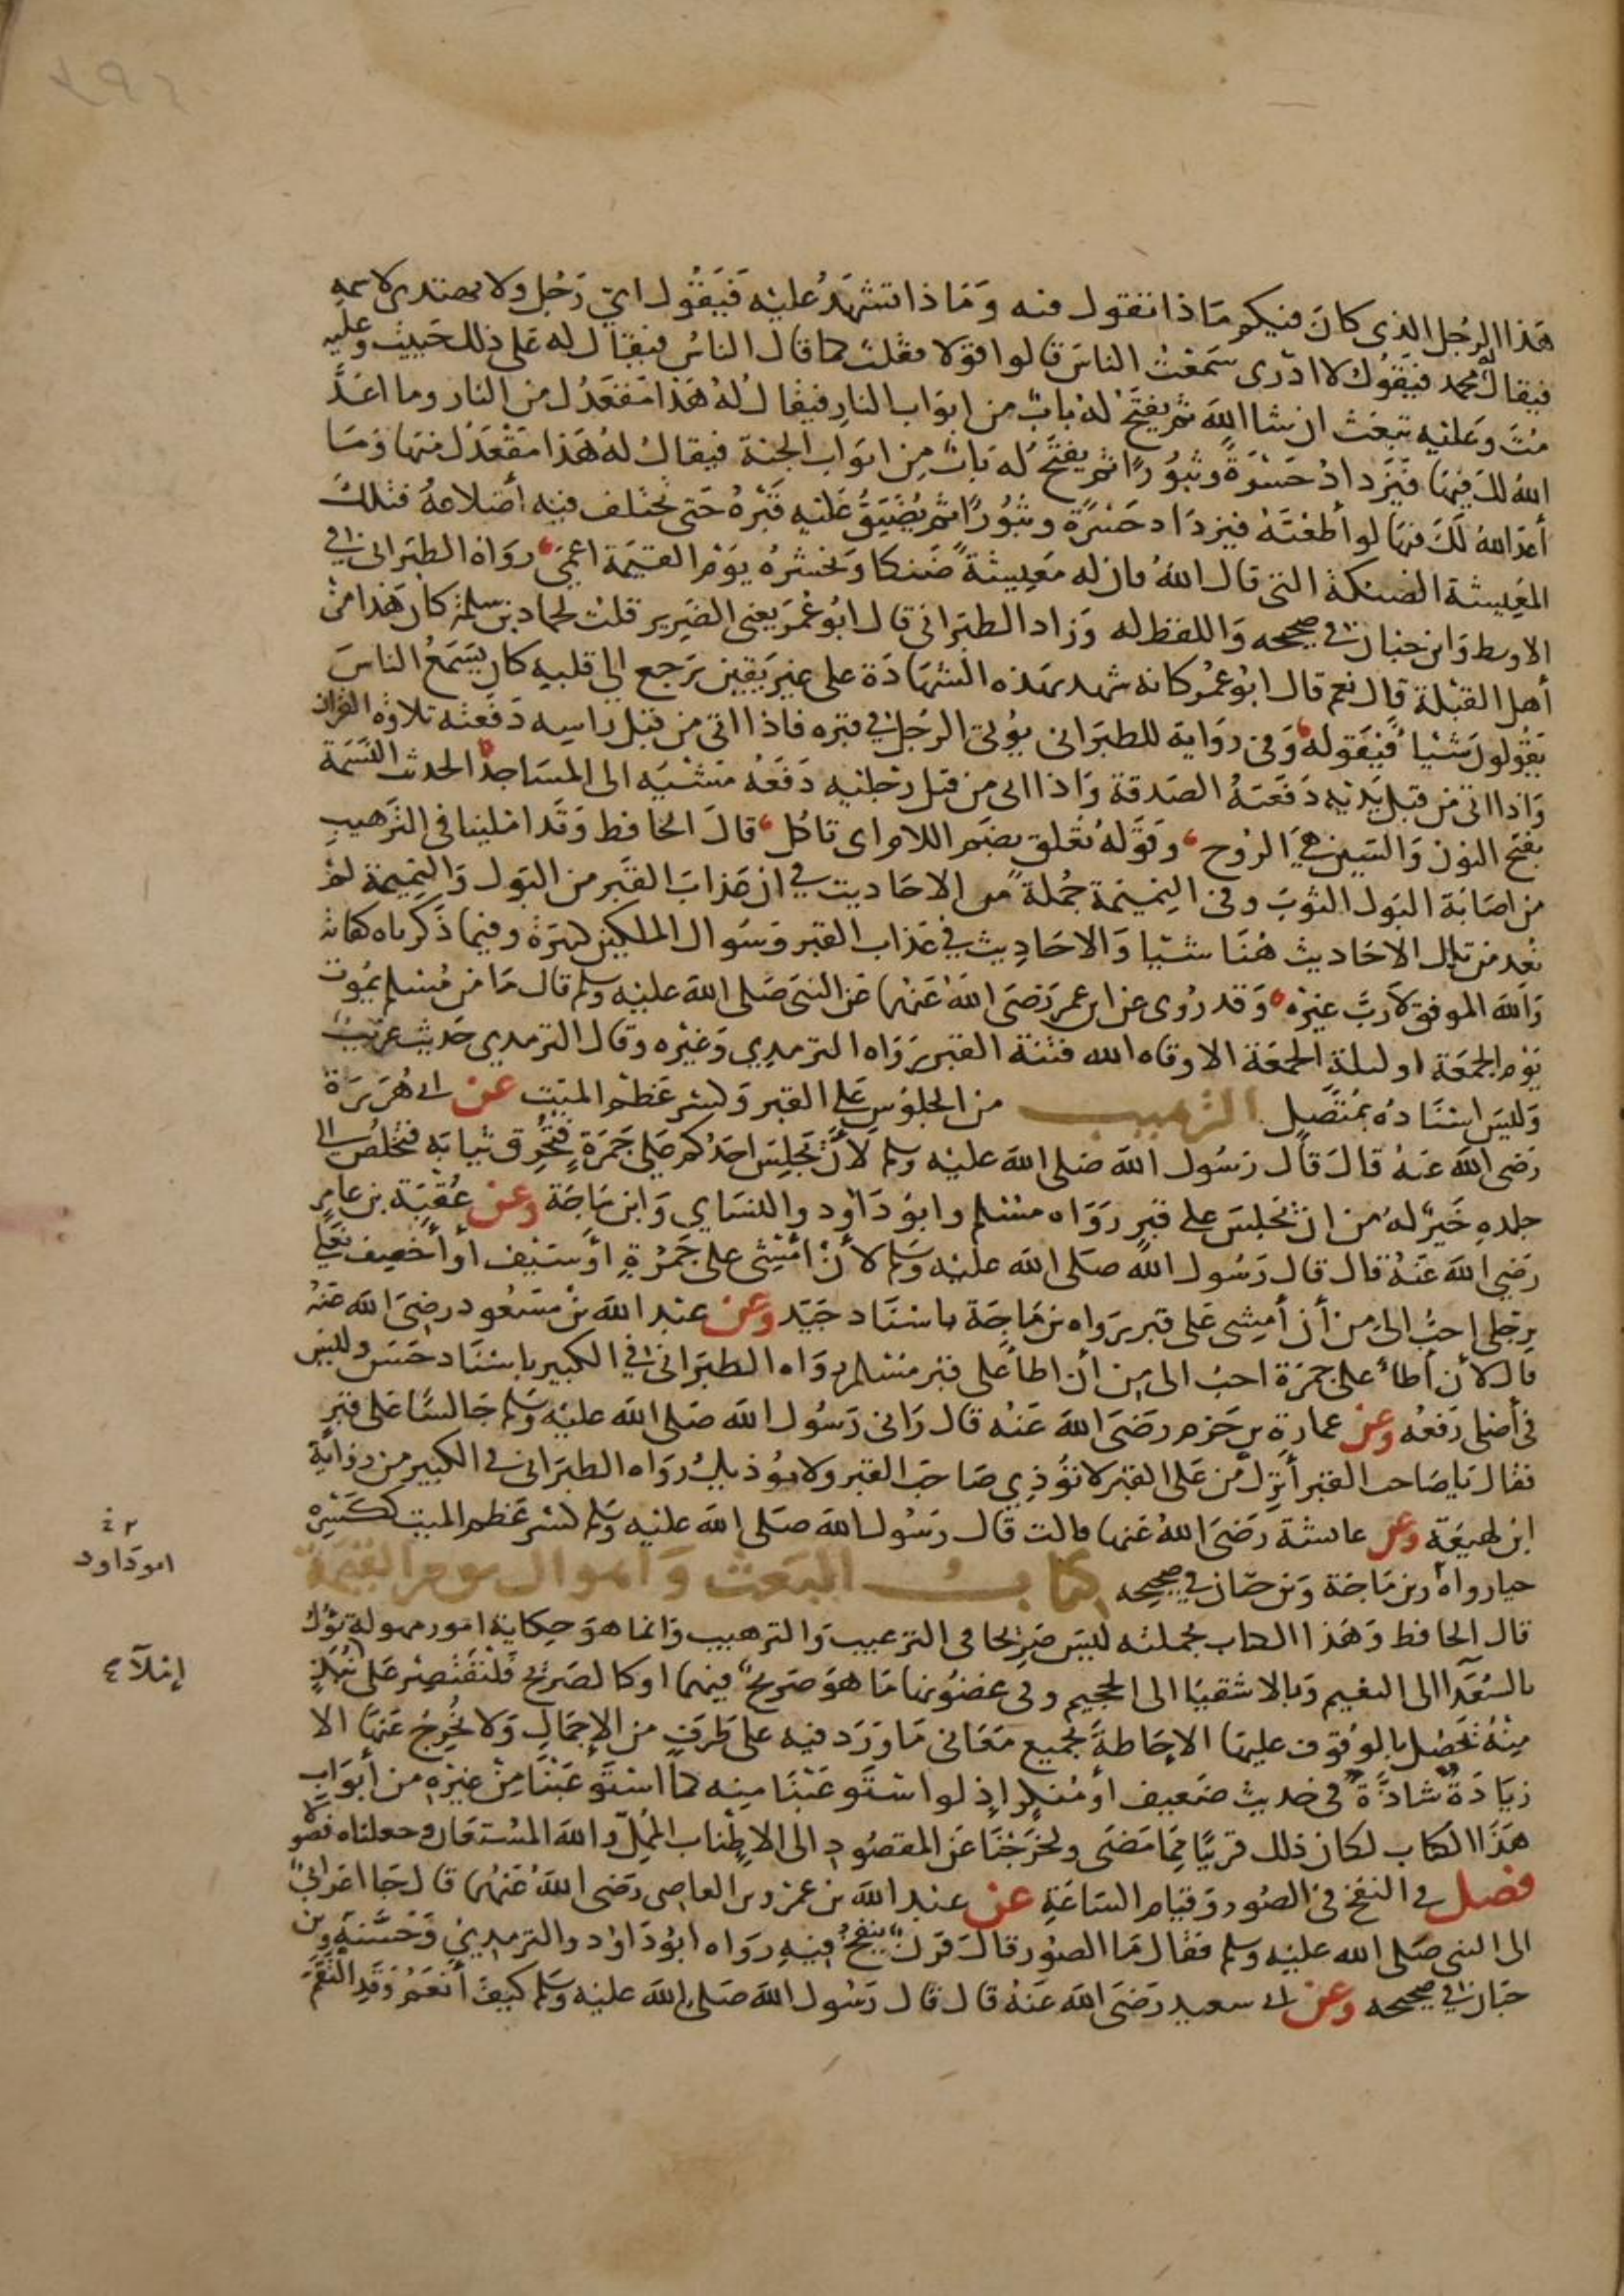 هذا الرجل الذى كان فيكم ماذا تقول فيه وماذا تشهد عليه فيقول اي رجل ولا يهتدى لاسمه
فيقال له محمد فيقول لا ادرى سمعت الناس قالوا قولا فقلت كما قال الناس فيقال له على ذلك حييت وعليه
مت وعليه تبعث ان شا الله ثم يفتح له باب من ابواب النار فيقال له هذا مقعدك من النار وما اعد
الله لك فيها فيزداد حسرة وثبورا ثم يفتح له باب من ابواب الجنة فيقال له هذا مقعدك منها وما
أعد الله لك فيها لو أطعته فيزداد حسرة وثبورا ثم يضيق عليه قبره حتى تختلف فيه أضلاعه فتلك
المعيشة الضنكة التى قال الله فان له معيشة ضنكا ونحشره يوم القيمة اعمى رواه الطبرانى فى
الاوسط وابن حبان فى صحيحه واللفظ له وزاد الطبرانى قال ابو عمر يعنى الضرير قلت لحماد بن سلمة كان هذا من
أهل القبلة قال نعم قال ابو عمر كانه شهد بهذه الشهادة على غير يقين يرجع الى قلبه كان يسمع الناس
يقولون شيا فيقوله وفى رواية للطبرانى يؤتى الرجل فى قبره فاذا اتى من قبل راسه دفعته تلاوة القران
واذا اتى من قبل يديه دفعته الصدقة واذا اتى من قبل رجليه دفعه مشيه الى المساجد الحدث النسمة
بفتح النون والسين هى الروح وقوله تعلق بضم اللام اى تاكل قال الحافظ وقد املينا فى الترهيب
من اصابة البول الثوب وفى النميمة جملة من الاحاديث في ان عذاب القبر من البول والنميمة لم
نعد من تلك الاحاديث هنا شيا والاحاديث في عذاب القبر وسوال الملكين كثيرة وفيما ذكرناه كفاية
والله الموفق لا رب غيره وقد روى عن ابن عمر رضى الله عنهما عن النبى صلى الله عليه وسلم قال ما من مسلم يموت
يوم الجمعة او ليلة الجمعة الا وقاه الله فتنة القبر رواه الترمذي وغيره وقال الترمذي حديث غريب
وليس اسناده بمتصل الترهيب من الجلوس على القبر وكسر عظم الميت عن ابى هريرة
رضى الله عنه قال قال رسول الله صلى الله عليه وسلم لأن يجلس احدكم على جمرة فتحرق ثيابه فتخلص الى
جلده خير له من ان يجلس على قبر رواه مسلم وابو داود والنساي وابن ماجة وعن عقبة بن عامر
رضي الله عنه قال قال رسول الله صلى الله عليه وسلم لأن أمشى على جمرة او سيف أو أخصف نعلي
برجلى احب الى من أن أمشى على قبر رواه بن ماجة باسناد جيد وعن عبد الله بن مسعود رضى الله عنه
قال لأن أطأ على جمرة احب الى من أن اطأ على قبر مسلم رواه الطبرانى فى الكبير باسناد حسن وليس
فى أصلى رفعه وعن عمارة بن حزم رضى الله عنه قال رانى رسول الله صلى الله عليه وسلم جالسا على قبر
فقال يا صاحب القبر أنزل من على القبر لا تؤذي صاحب القبر ولا يوذيك رواه الطبرانى فى الكبير من رواية
ابن لهيعة وعن عايشة رضى الله عنها قالت قال رسول الله صلى الله عليه وسلم كسر عظم الميت ككسره
حيا رواه د بن ماجة وبن حبان في صحيحه كتاب البعث واهوال يوم القيمة
قال الحافظ وهذا الكتاب بجملته ليس صريحا فى الترغيب والترهيب وانما هو حكاية امور مهولة تؤل
بالسعدا الى النعيم وبالاشقيا الى الجحيم وفى غضونها ما هو صريح فيهما او كالصريح فلنقتصر على نبذ
منه تحصل بالوقوف عليها الاحاطة بجميع معانى ما ورد فيه على طرف من الإجمال ولا يخرج عنها الا
زيادة شاذة فى حديث ضعيف أو منكر إذ لو استوعبنا منه كما استوعبنا من غيره من أبواب
هذا الكتاب لكان ذلك قريبا مما مضى ولخرجنا عن المقصود الى الاطناب الممل والله المستعان وجعلناه فصولا
فصل فى النفخ فى الصور وقيام الساعة عن عبد الله بن عمرو بن العاصى رضى الله عنهما قال جا اعرابي
الى النبى صلى الله عليه وسلم فقال ما الصور قال قرن ينفخ فيه رواه ابو داود والترمذي وحسنه وبن
حبان فى صحيحه وعن ابى سعيد رضى الله عنه قال قال رسول الله صلى الله عليه وسلم كيف أنعم وقد التقم
ابو داود
إملآ